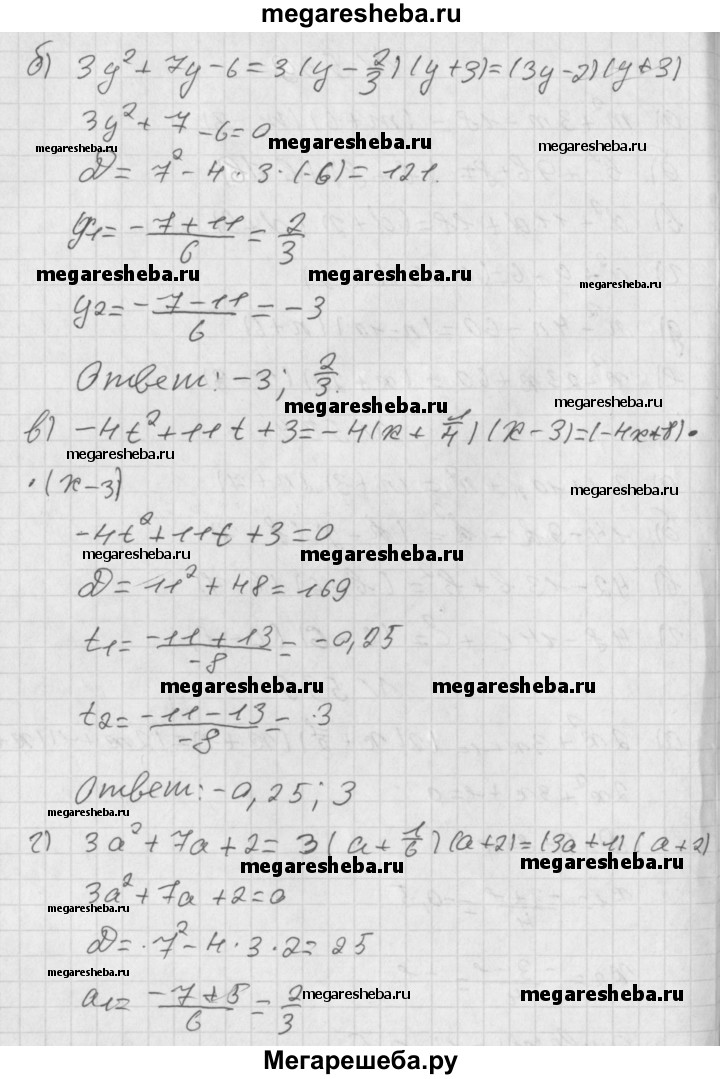 megaresheba.ru
б) 3y² + 7y - 6 = 3(y - 2/3)(y + 3) = (3y - 2)(y + 3)
3y² + 7 - 6 = 0
megaresheba.ru megaresheba.ru megaresheba.ru
D = 7² - 4 · 3 · (-6) = 121.
y₁ = (-7 + 11)/6 = 2/3
megaresheba.ru megaresheba.ru megaresheba.ru
y₂ = (-7 - 11)/6 = -3
Ответ: -3; 2/3.
megaresheba.ru megaresheba.ru
в) -4t² + 11t + 3 = -4(x + 1/4)(x - 3) = (-4x + 8) ·
megaresheba.ru
· (x - 3)
megaresheba.ru
-4t² + 11t + 3 = 0
megaresheba.ru megaresheba.ru
D = 11² + 48 = 169
t₁ = (-11 + 13)/-8 = -0,25
megaresheba.ru megaresheba.ru
t₂ = (-11 - 13)/-8 = 3
Ответ: -0,25; 3
megaresheba.ru
г) 3a² + 7a + 2 = 3(a + 1/6)(a + 2) = (3a + 1)(a + 2)
megaresheba.ru megaresheba.ru
3a² + 7a + 2 = 0
megaresheba.ru
D = 7² - 4 · 3 · 2 = 25
megaresheba.ru
a₁ = (-7 + 5)/6 = 2/3
megaresheba.ru megaresheba.ru
Мегарешеба.ру